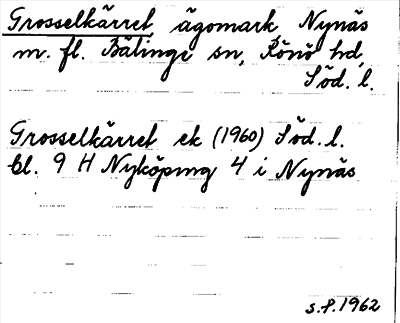 Grosselkärret, ägomark Nynäs
m. fl. Bälinge sn, Rönö hd,
Söd. l.
Grosselkärret ek (1960) Söd. l.
bl. 9 H Nyköping 4 i Nynäs
s.f. 1962